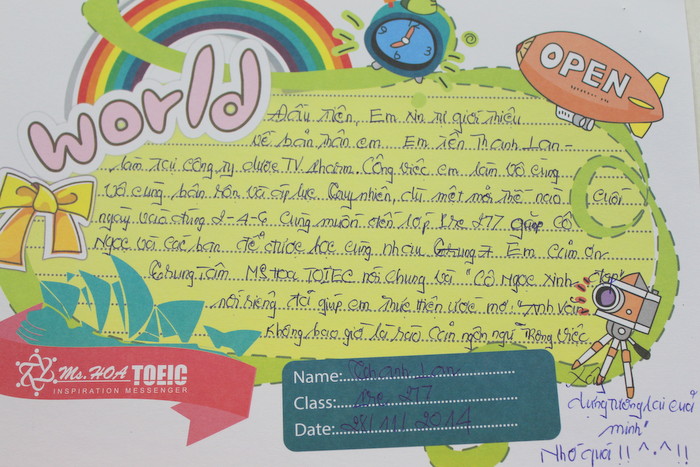 world
OPEN
Đầu tiên, Em xin tự giới thiệu
về bản thân em. Em tên Thanh Lan -
làm tại công ty dược TV. Pharm. Công việc em làm vô cùng
vô cùng bận rộn và áp lực. Tuy nhiên, dù mệt mỏi thế nào cuối
ngày vào đúng 2-4-6 cũng muốn đến lớp Pre 277 gặp cô
Ngọc và các bạn để được học cùng nhau. Em cảm ơn
Trung Tâm Ms Hoa TOIEC nói chung và "Cô Ngọc xinh đẹp"
nói riêng đã giúp em thực hiện ước mơ: "Anh văn
không bao giờ là rào cản ngôn ngữ trong việc
dựng tương lai của
mình"
Nhớ quá!! ^.^ !!
Ms. HOA TOEIC
INSPIRATION MESSENGER
Name: Thanh Lan
Class: Pre 277
Date: 28/11/2014